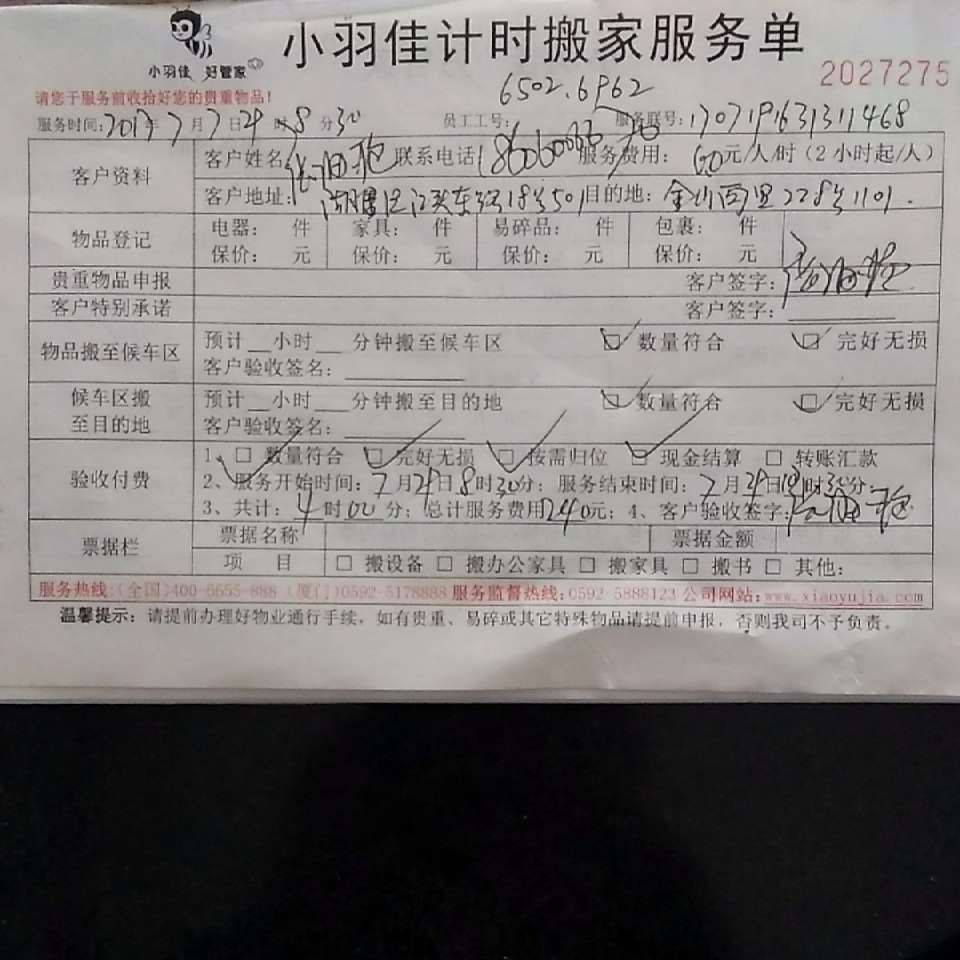 小羽佳 好管家
小羽佳计时搬家服务单
2027275
6502.6962
请您于服务前收拾好您的贵重物品!
服务时间:2017年7月29日 8时30分 员工工号: 服务联号:1707191631311468
客户资料 客户姓名: 联系电话 服务费用: 60元/人/时(2小时起/人)
客户地址: 湖里区 18号501 目的地: 金山西里228号1101.
物品登记 电器: 件 家具: 件 易碎品: 件 包裹: 件
保价: 元 保价: 元 保价: 元 保价: 元
贵重物品申报 客户签字:
客户特别承诺 客户签字:
物品搬至候车区 预计__小时__分钟搬至候车区 ☑ 数量符合 ☑ 完好无损
客户验收签名:
候车区搬至目的地 预计__小时__分钟搬至目的地 ☑ 数量符合 ☑ 完好无损
客户验收签名:
验收付费 1、☑ 数量符合 ☑ 完好无损 ☑ 按需归位 ☑ 现金结算 □ 转账汇款
2、服务开始时间:7月29日8时30分; 服务结束时间:7月29日10时30分;
3、共计:4时00分; 总计服务费用240元; 4、客户验收签字:
票据栏 票据名称 票据金额
项 目 □ 搬设备 □ 搬办公家具 □ 搬家具 □ 搬书 □ 其他:
服务热线:(全国)400-6655-888 (厦门)0592-5178888 服务监督热线:0592-5888123 公司网站:www.xiaoyujia.com
温馨提示:请提前办理好物业通行手续,如有贵重、易碎或其它特殊物品请提前申报,否则我司不予负责。